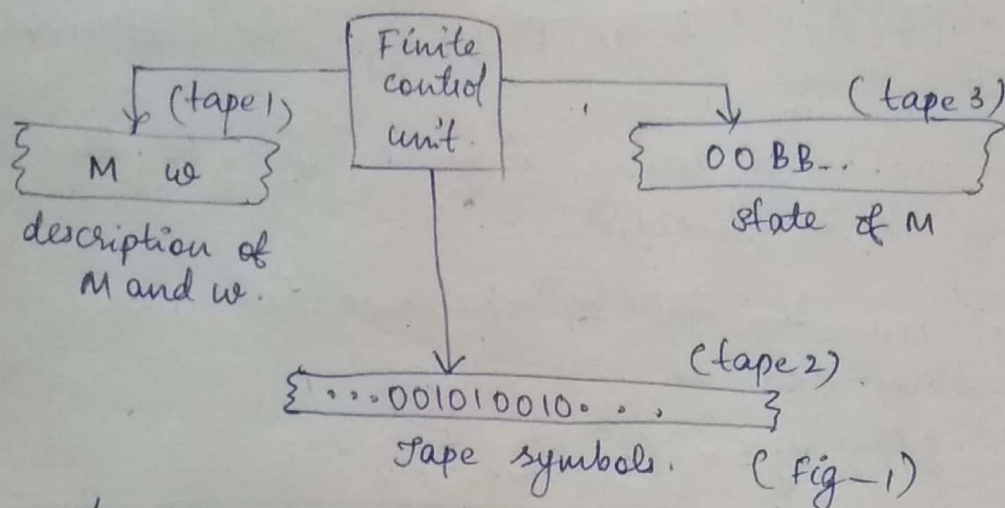 Finite
control
unit.
(tape 1)
M w
description of
M and w.
(tape 3)
00BB...
state of M
(tape 2)
...001010010...
Tape symbols.
(Fig-1)